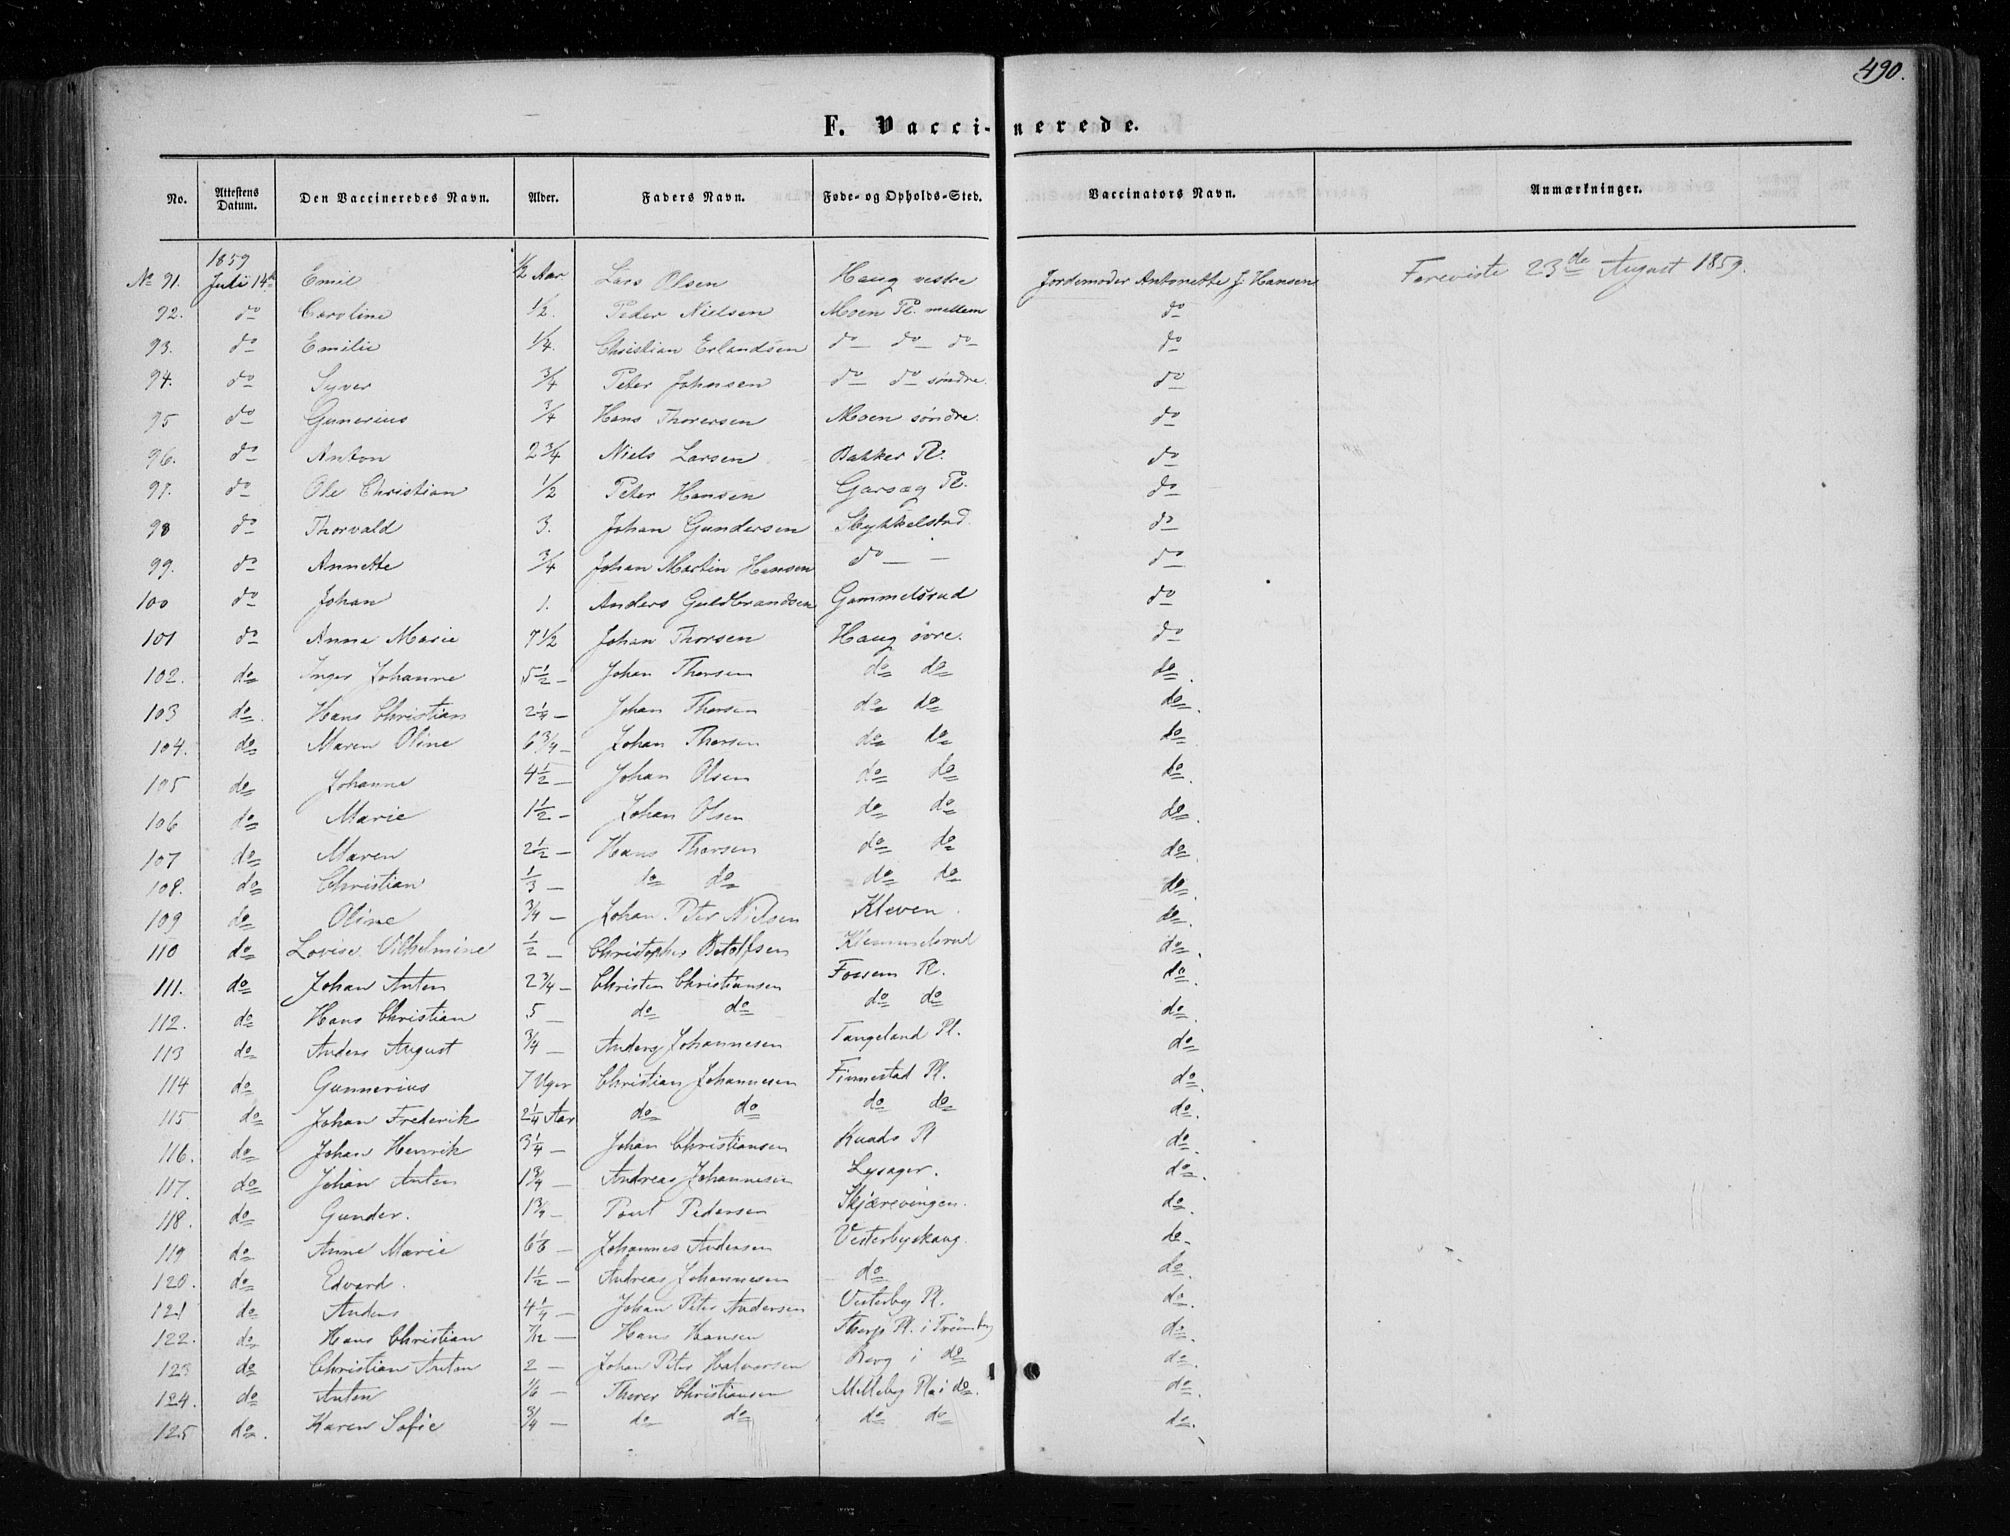 490.
F. Vaccinerede.
No. Attestens Datum. Den Vaccineredes Navn. Alder. Faders Navn. Føde- og Opholds-Sted. Vaccinators Navn. Anmærkninger.
1859
No 91. Juli 14de Emil 1/2 Aar Lars Olsen Haug vestre Jordemoder Antonette J. Hansen Foreviste 23de August 1859.
92. do Caroline 1/2. Peder Nielsen Moen Pl. mellem do
93. do Emilie 1/4. Christian Erlandsen do do do do
94. do Syver 3/4 Peter Johnsen do do søndre. do
95 do Gunerius 3/4 Hans Thorersen Moen søndre. do
96. do Anton 2 3/4 Niels Larsen Bakker Pl. do
97. do Ole Christian 1/2 Peter Hansen Garsæg Pl. do
98 do Thorvald 3. Johan Gundersen Stykkelstad. do
99. do Annette 3/4 Johan Martin Hansen do do
100 do Johan 1. Anders Guldbrandsen Gammelsrud do
101 do Anne Marie 7 1/2 Johan Thorsen Haug øvre. do
102. do Inger Johanne 5 1/2 – Johan Thorsen do do do.
103 do. Hans Christian 2 1/4 – Johan Thorsen do do do.
104. do Maren Oline 6 3/4 – Johan Thorsen do do do.
105 do Johanne 4 1/2 – Johan Olsen do do do.
106 do Marie 1 1/2 – Johan Olsen do do do.
107 do Maren 2 1/2 – Hans Thorsen do do do.
108. do Christian 1/3 – do do do do do.
109 do Oline 3/4 – Johan Peter Nielsen Kleven. do.
110 do Lovise Vilhelmine 1/2 – Christopher Botolfsen Klemmetsrud do.
111. do Johan Anton 2 3/4 – Christen Christiansen Fossem Pl. do.
112. do Hans Christian 5 – do do do do do.
113 do Anders August 3/4 – Anders Johannesen Tangeland Pl. do.
114 do Gunnerius 7 Uger Christian Johannesen Finnestad Pl. do.
115 do Johan Frederik 2 1/4 Aar do do do do do.
116. do Johan Henrik 3 1/4 – Johan Christiansen Knads Pl do.
117. do Johan Anton 1 3/4 – Andreas Johannesen Lysager. do.
118. do Gunder. 1 3/4 – Poul Pedersen Skjærevingen. do.
119 do Anne Marie 6 1/6 – Johannes Andersen Vesterbyskaug. do
120. do Edvard. 1 1/2 – Andreas Johannesen do do.
121 do Anders 4 1/4 – Johan Peter Andersen Vesterby Pl. do.
122. do Hans Christian 7/12 – Hans Hansen Thorp Pl. i Trømborg do.
123 do Christian Anton 2 – Johan Peter Halvorsen Berg i do do.
124. do Anton 1/6 – Thorer Christiansen Melleby Pl. i do. do.
125 do. Karen Sofie 3/4 – do do do do do.